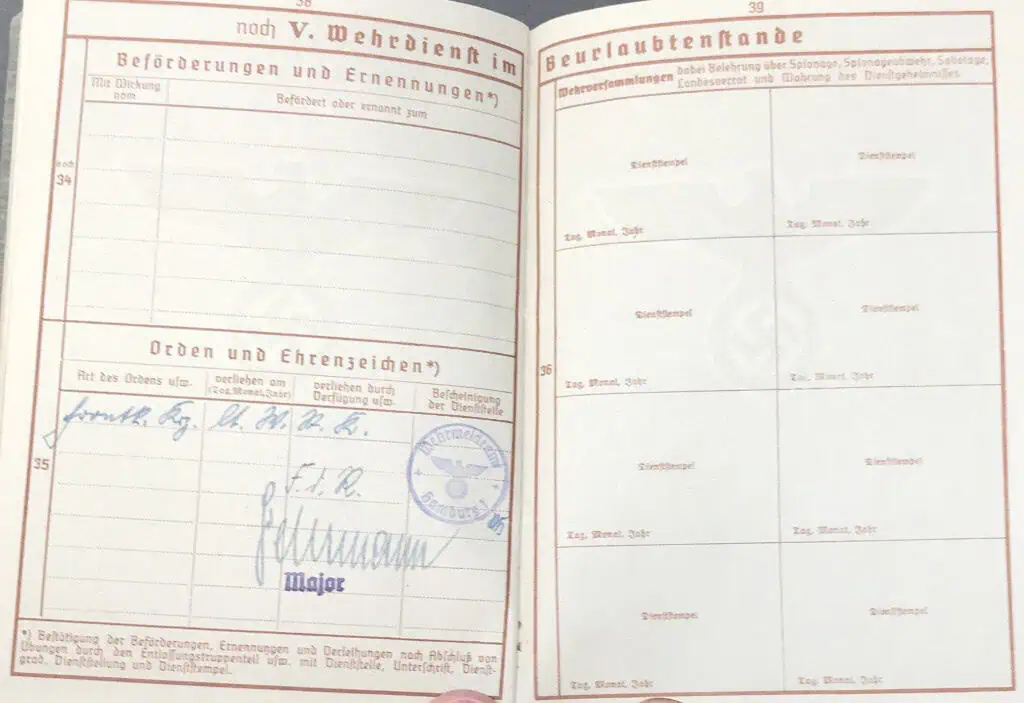 38
noch V. Wehrdienst im
Beförderungen und Ernennungen*)
Mit Wirkung
vom
Befördert oder ernannt zum
noch
34
Orden und Ehrenzeichen*)
Art des Ordens usw.
verliehen am
(Tag, Monat, Jahr)
verliehen durch
Verfügung usw.
Bescheinigung
der Dienststelle
35
Frontk. Krz. lt. W. St. K.
Wehrmeldeamt
Hamburg 1
F. d. R.
Major
*) Bestätigung der Beförderungen, Ernennungen und Verleihungen nach Abschluß von
Übungen durch den Entlassungstruppenteil usw. mit Dienststelle, Unterschrift, Dienst-
grad, Dienststellung und Dienststempel.
39
Beurlaubtenstande
Wehrversammlungen dabei Belehrung über Spionage, Spionageabwehr, Sabotage,
Landesverrat und Wahrung des Dienstgeheimnisses
Dienststempel
Dienststempel
Tag, Monat, Jahr
Tag, Monat, Jahr
36
Dienststempel
Dienststempel
Tag, Monat, Jahr
Tag, Monat, Jahr
Dienststempel
Dienststempel
Tag, Monat, Jahr
Tag, Monat, Jahr
Dienststempel
Dienststempel
Tag, Monat, Jahr
Tag, Monat, Jahr